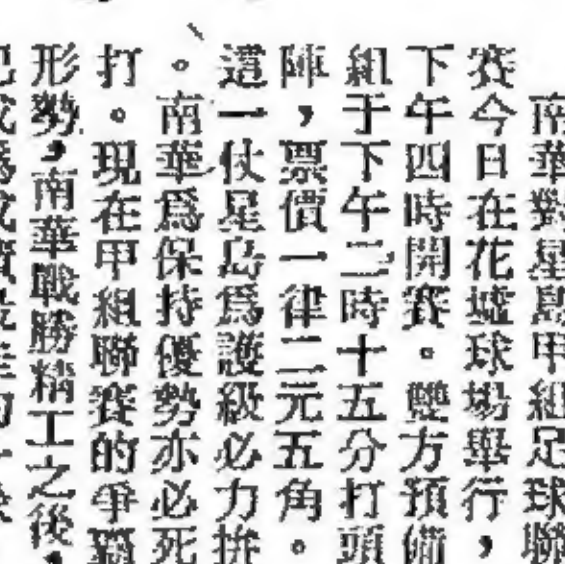 南華對星島甲組足球聯
賽今日在花墟球場舉行，
下午四時開賽。雙方預備
組于下午二時十五分打頭
陣，票價一律二元五角。
這一仗星島爲護級必力拚
。南華爲保持優勢亦必死
打。現在甲組聯賽的爭覇
形勢，南華戰勝精工之後，